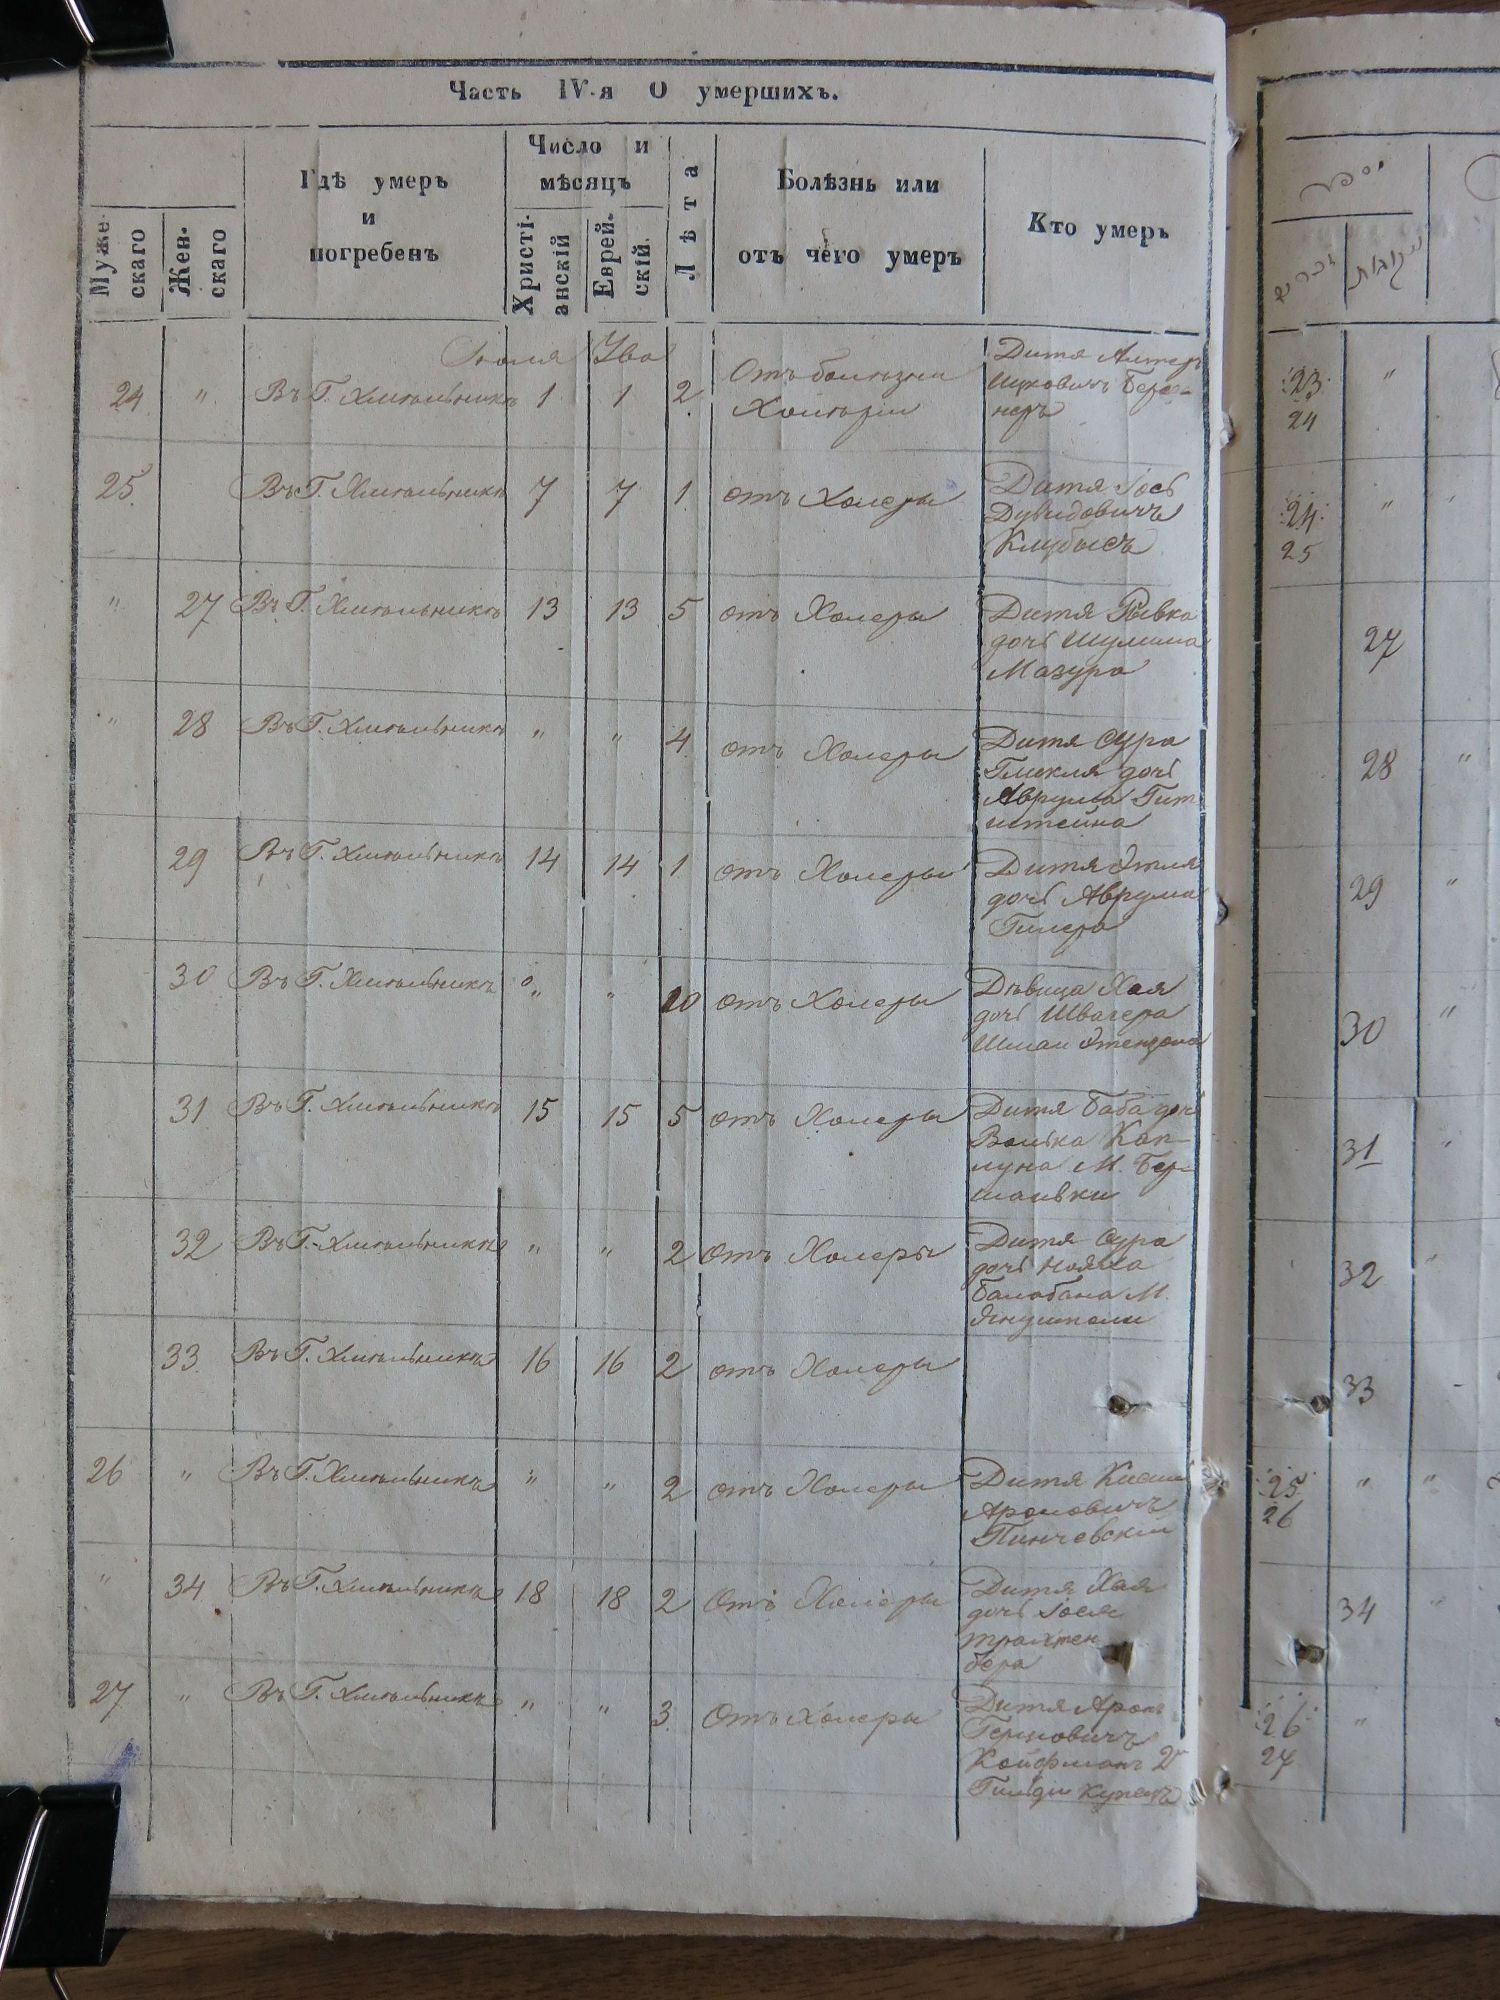 Часть IV-я О умершихъ.
Мужескаго
Женскаго
Гдѣ умеръ
и
погребенъ
Число и
мѣсяцъ
Христіанскій
Еврейскій.
Лѣта
Болѣзнь или
отъ чего умеръ
Кто умеръ
Іюля
24 " Въ Г. Хмѣльникѣ 1 1 2
Отъ болѣзни
Дитя
25 Въ Г. Хмѣльникѣ 7 7 1 отъ Холеры
Дитя Іось
Дувидовичъ
" 27 Въ Г. Хмѣльникѣ 13 13 5 отъ Холеры
Дитя Рывка
дочь Шулима
Мазура
" 28 Въ Г. Хмѣльникѣ " " 4 отъ Холеры
Дитя Сура
дочь
Аврума
штейна
29 Въ Г. Хмѣльникѣ 14 14 1 отъ Холеры
Дитя Этля
дочь Аврума
30 Въ Г. Хмѣльникѣ " " 10 отъ Холеры
Дѣвица Хая
дочь
31 Въ Г. Хмѣльникѣ 15 15 5 отъ Холеры
Дитя Баба дочь
Волька Кап-
луна М.
32 Въ Г. Хмѣльникѣ " " 2 отъ Холеры
Дитя Сура
дочь
Балабана М.
33 Въ Г. Хмѣльникѣ 16 16 2 отъ Холеры
26 " Въ Г. Хмѣльникѣ " " 2 отъ Холеры
Дитя
Ароновичъ
Пинчевскій
" 34 Въ Г. Хмѣльникѣ 18 18 2 Отъ Холеры
Дитя Хая
дочь Іося
трахтен
бера
27 " Въ Г. Хмѣльникѣ " " 3 Отъ Холеры
Дитя Аронъ
Койфманъ 2й
Гильдіи Купецъ
23 "
24
24 "
25
27
28 "
29 "
30 "
31 "
32 "
33
25 " "
26
34 "
26 "
27